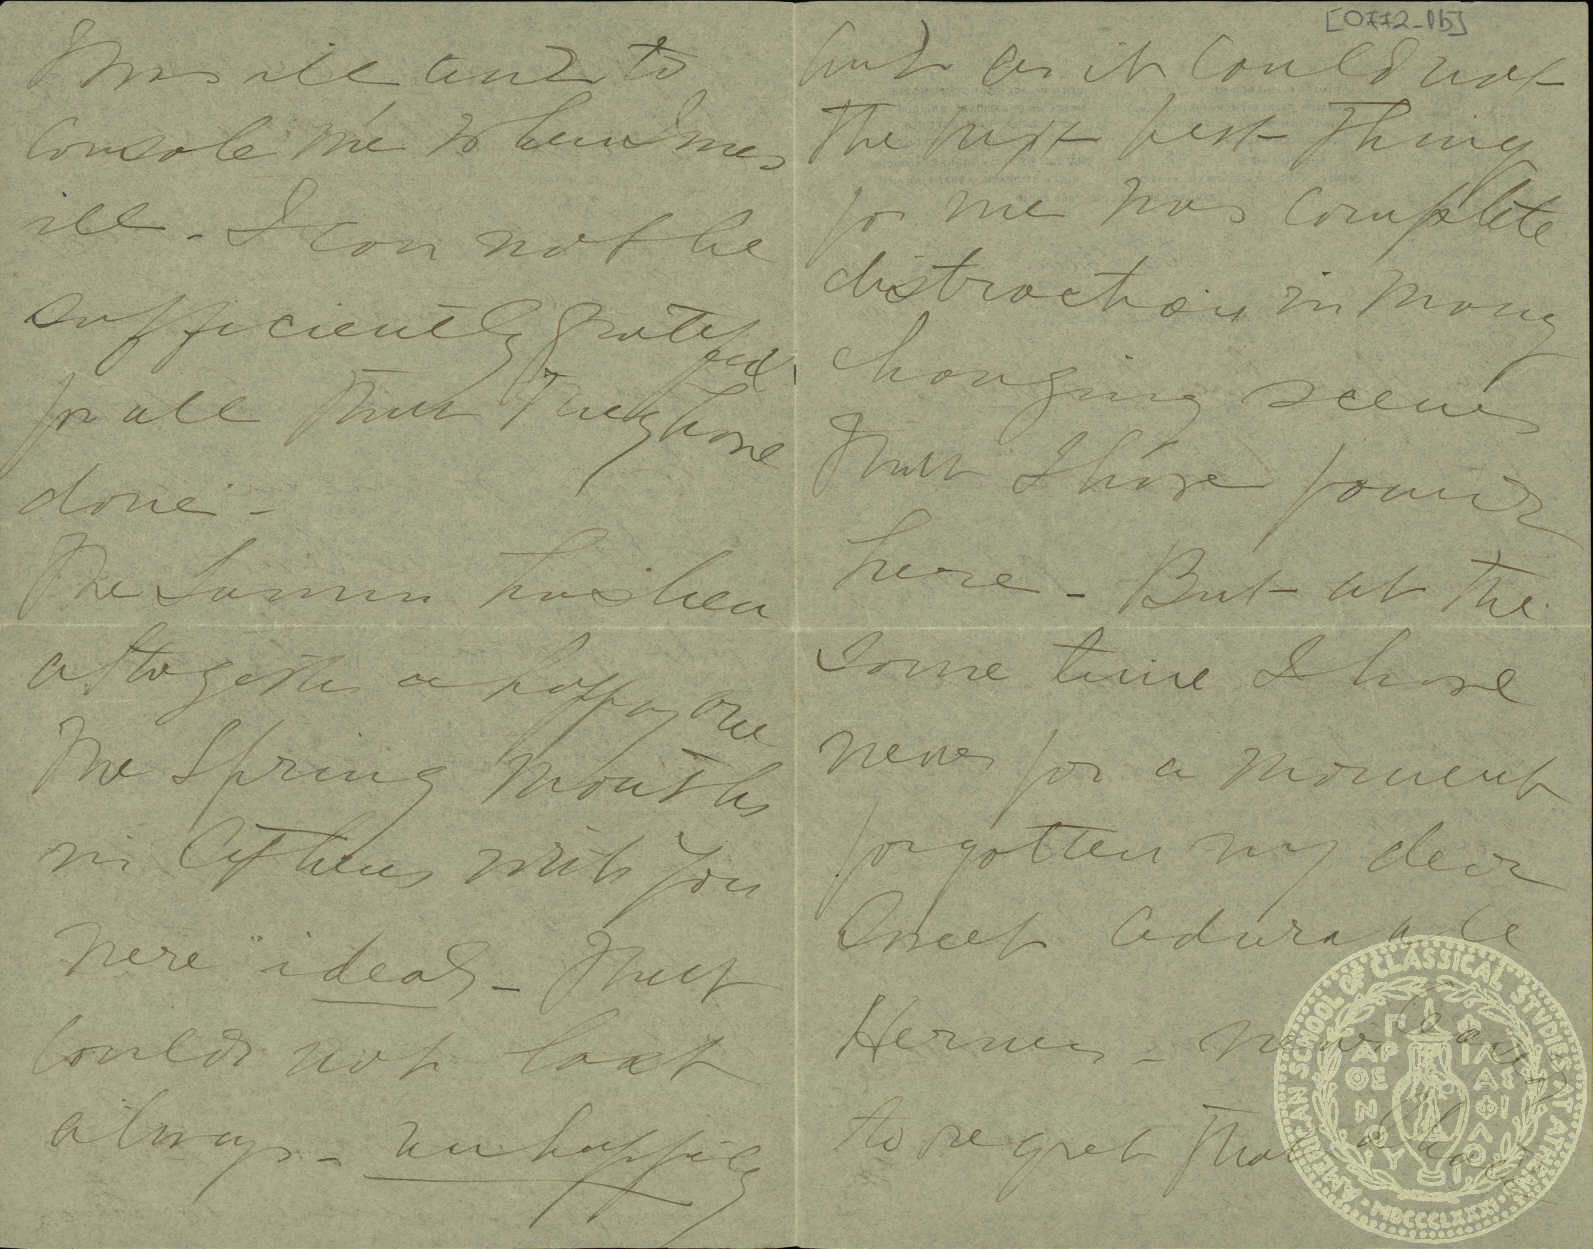 I was ill and to
console me when I was
ill - I can not be
sufficiently grateful
for all that they have
done -
The Summer has been
altogether a happy one
The Spring months
in Athens with you
were "ideal - That
could not last
always - unhappily
[0772-1b]
but as it could not
the next best thing
for me was complete
distraction in many
changing scenes
that I have found
here - But at the
same time I have
never for a moment
forgotten my dear
Sweet adorable
Hermes -
to regret that
AMERICAN SCHOOL OF CLASSICAL STUDIES AT ATHENS
MDCCCLXXXI